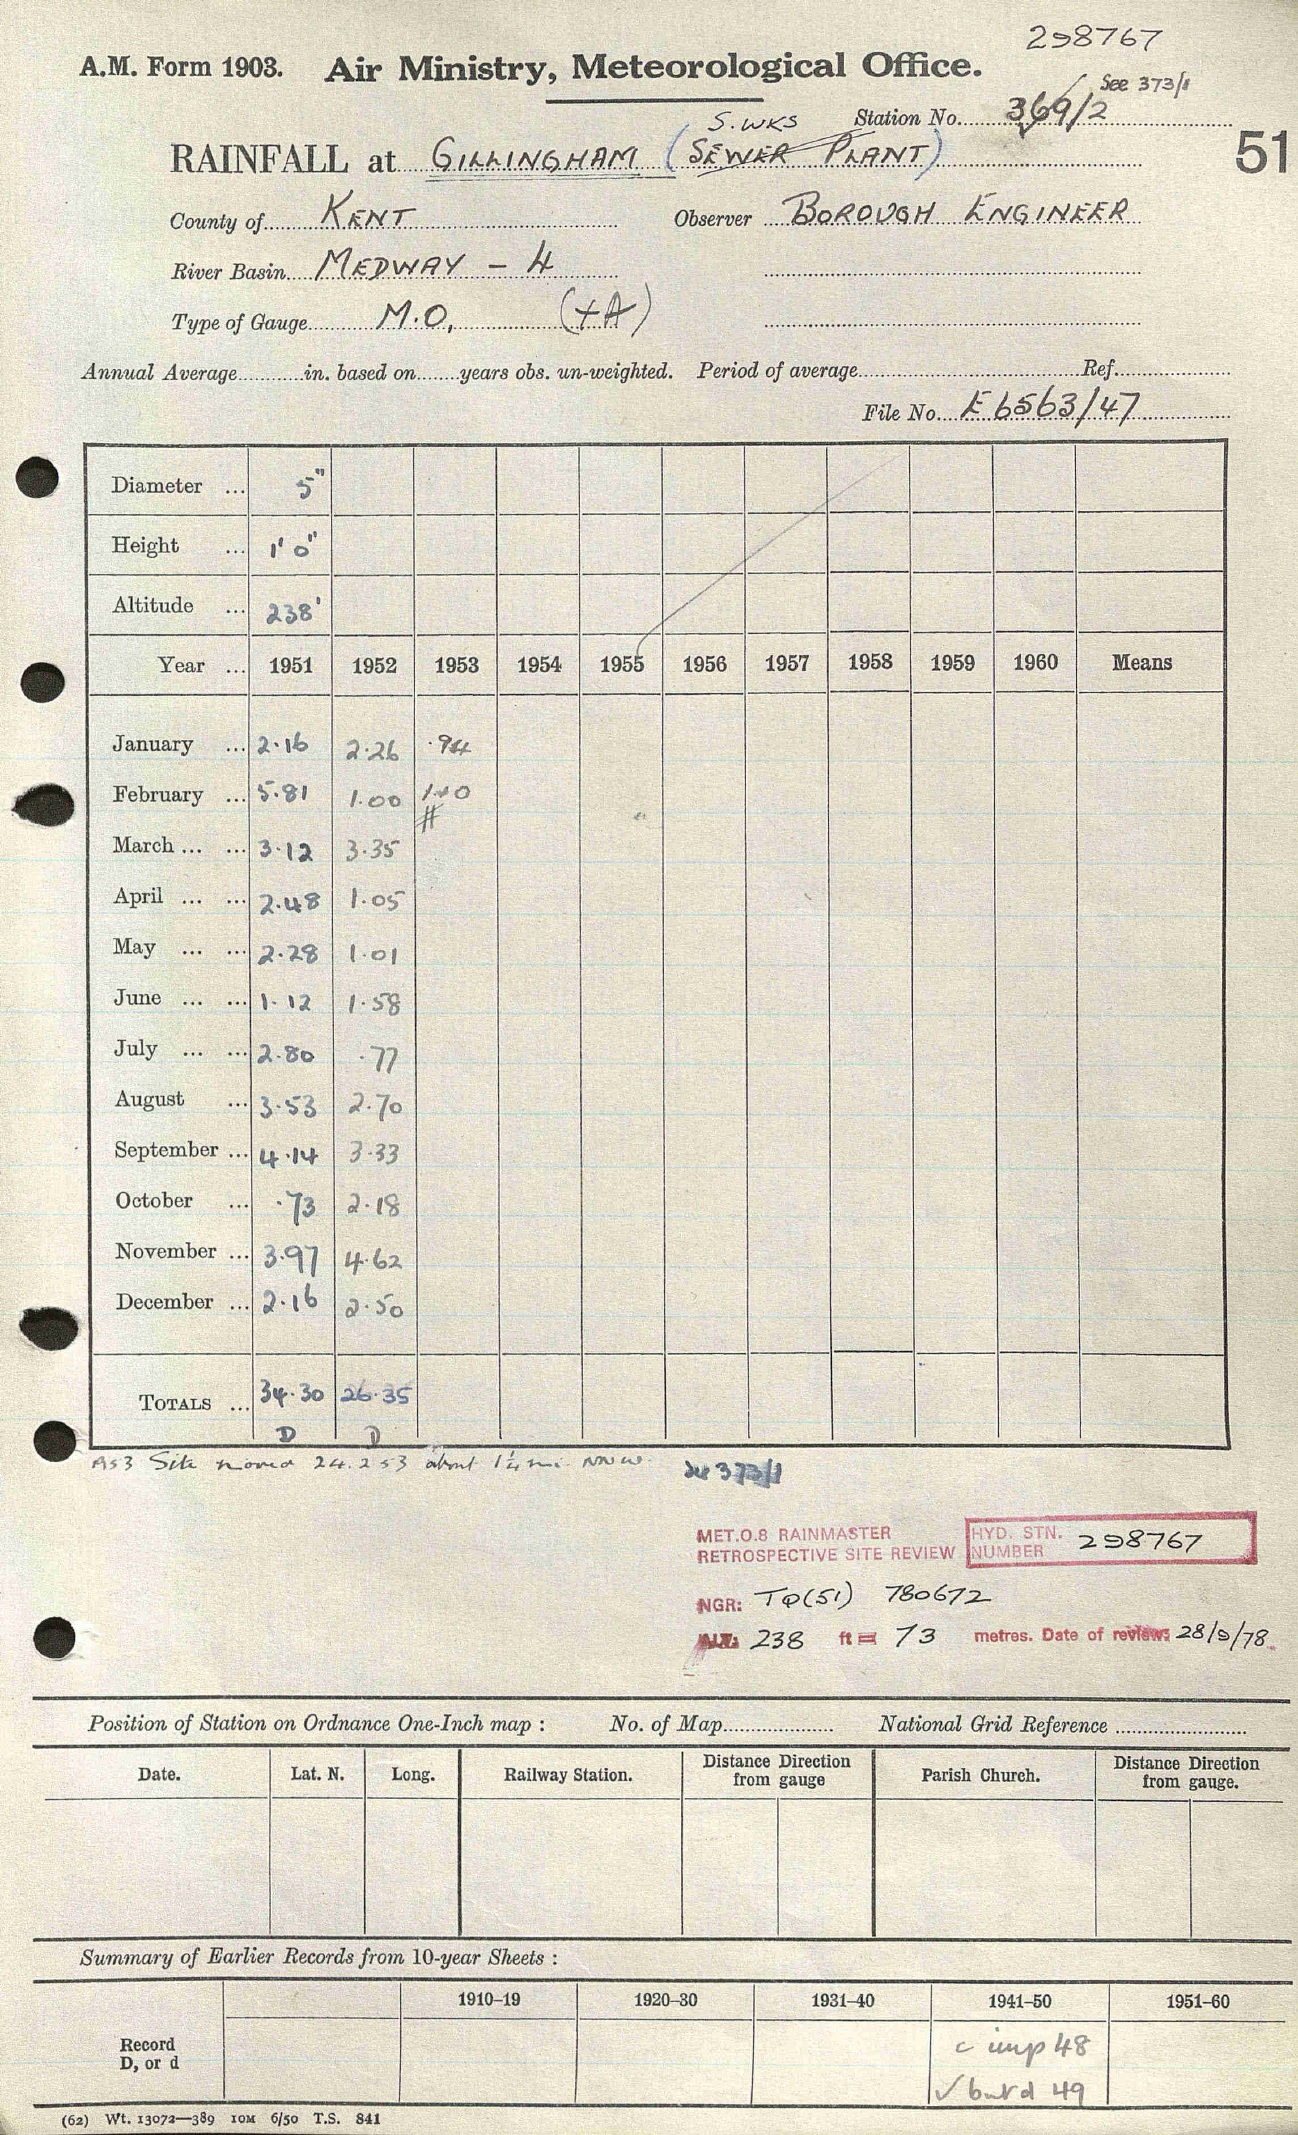 298767
A.M. Form 1903. Air Ministry, Meteorological Office.
See 373/1
S. WKS Station No. 369/2
RAINFALL at GILLINGHAM (SEWER PLANT) 51
County of KENT Observer BOROUGH ENGINEER
River Basin MEDWAY – 4
Type of Gauge M.O, (+A)
Annual Average in. based on years obs. un-weighted. Period of average Ref.
File No. E6563/47
Diameter ... 5"
Height ... 1' 0"
Altitude ... 238'
Year ... 1951 1952 1953 1954 1955 1956 1957 1958 1959 1960 Means
January ... 2·16 2·26 ·94
February ... 5·81 1·00 1·10
#
March ... ... 3·12 3·35
April ... ... 2·48 1·05
May ... ... 2·28 1·01
June ... ... 1·12 1·58
July ... ... 2·80 ·77
August ... 3·53 2·70
September ... 4·14 3·33
October ... ·73 2·18
November ... 3·97 4·62
December ... 2·16 2·50
TOTALS ... 34·30 26·35
D D
A53 Site moved 24.2.53 about 1¼ mi. NNW. see 373/1
MET.O.8 RAINMASTER HYD. STN.
RETROSPECTIVE SITE REVIEW NUMBER 298767
NGR: TQ(51) 780672
ALT: 238 ft = 73 metres. Date of review: 28/9/78
Position of Station on Ordnance One-Inch map : No. of Map National Grid Reference
Date. Lat. N. Long. Railway Station. Distance from gauge Direction Parish Church. Distance from gauge. Direction
Summary of Earlier Records from 10-year Sheets :
1910–19 1920–30 1931–40 1941–50 1951–60
Record
D, or d
c imp 48
✓ but d 49
(62) Wt. 13072—389 10M 6/50 T.S. 841